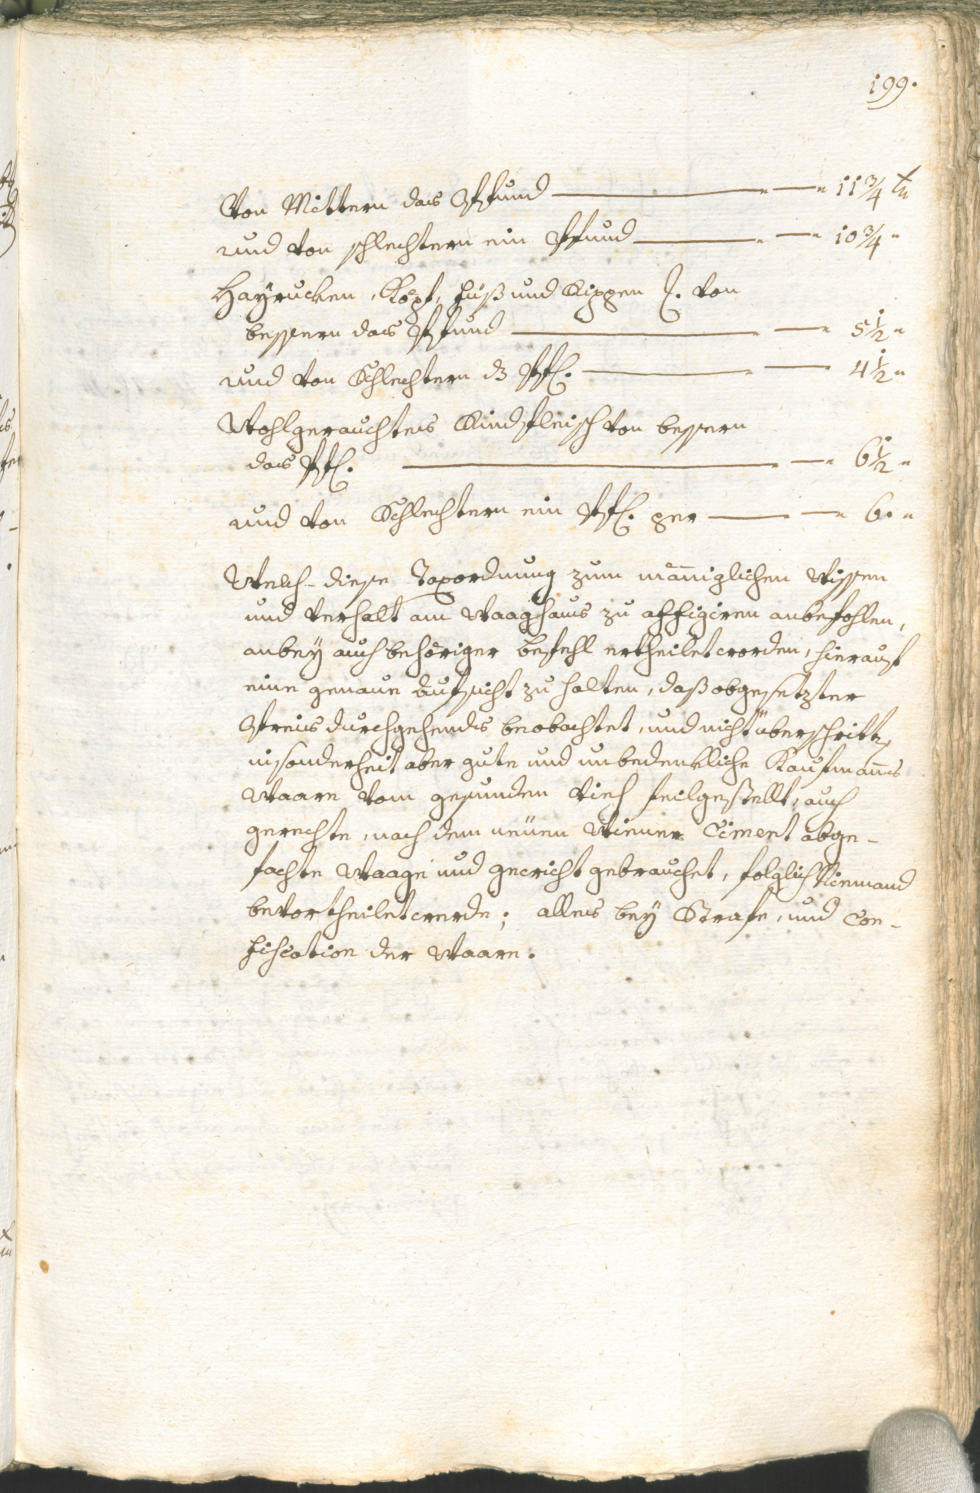 199.
Von Mittern das Pfund — — 11 3/4 xr
und von schlechtern ein Pfund — — 10 3/4 "
Hayrucken, Köpf, Füß und Rippen von
bessern das Pfund — — 5 1/2 "
und von Schlechtern dz Pf. — — 4 1/2 "
Wohlgerauchtes Rindfleisch von bessern
das Pf. — — 6 1/2 "
und von Schlechtern ein Pf. per — — 6. "
Welch-diese Taxordnung zum männiglichen Wissen
und Verhalt am Waaghaus zu affigiren anbefohlen,
anbey auch behöriger Befehl ertheilet worden, hierauf
eine genaue Aufsicht zu halten, daß obgesetzter
Preis durchgehends beobachtet, und nicht überschritten,
insonderheit aber gute und unbedenkliche Kaufmanns
Waare vom gesunden Vieh feilgestellt, auch
gerechte, nach dem neuen Wiener Ciment abge-
fachte Waage und Gewicht gebrauchet, folglich Niemand
bevortheilet werde; alles bey Strafe, und Con-
fiscation der Waare.